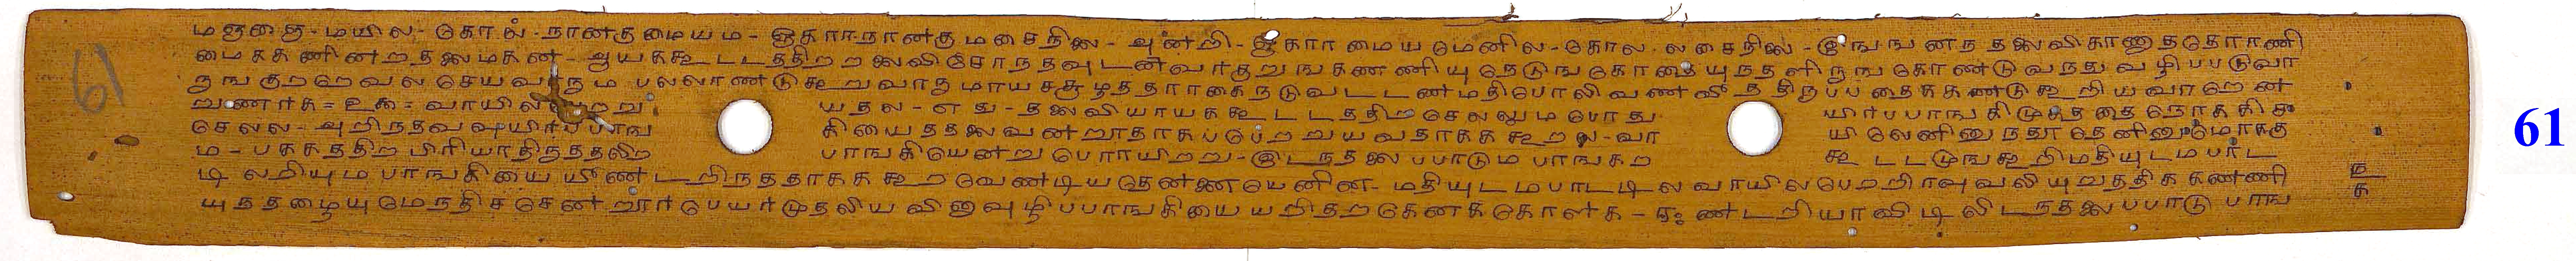 மஞ்ஞை-மயில-கோல-நானகுமையம-ஓகாரநானகுமசைநிலை-அன்றி-ஓகாரமையமெனில-கோல லசைநிலை-இஙஙனந தலைவிகாணுததோரணி
மைககணினறதலைமகன-ஆயககூடடததிறறலைவிசோநதவுடன்வாநதுறுஙகணணியுநெடுஙகோதையுநதளிருங கொண்டுவநது வழிபபடுவா
ருஙகுறறேவலசெயவாரும பலலாணடுகூறுவாருமாயசசூழததாரகைநடுவடடணமதிபோலிவணவீ றறிருபபதைககண்டுகூறியவாறெண
றுணாக= உக= வாயில பெறறு யதல-எது-தலைவியாயககூடடததிறசெலலுமபோது யிாபபாஙகிமுகததைநோககிச
செலல-அறிநதவவுயிாபபாங கியைததலைவன்றூதாகபபெறறுயவதாகககூறல-வா யிலெனினுநதூதெனினுமொககு
ம-பகக்ததிற பிரியாதிருதத்லிற பாஙகியென்று பெராயிறறு-இடநதலைபபாடும பாஙகற கூடடமுஙகூறிமதியுடமபட
டிலறியும பாஙகியை யீண்டறிநததாகக கூறவேணடியதென்னையெனின-மதியுடமபாடடிலவாயிலபெறறிரவுவலியுறுததிக கணணி
யுநதழையுமேநதிசசெண்றூாபெயாமுதலிய வினுவுழிபபாஙகியையறிதறகெனககொளக-ஈண்டறியாவிடிலிடநதலைபபாடு பாங
61